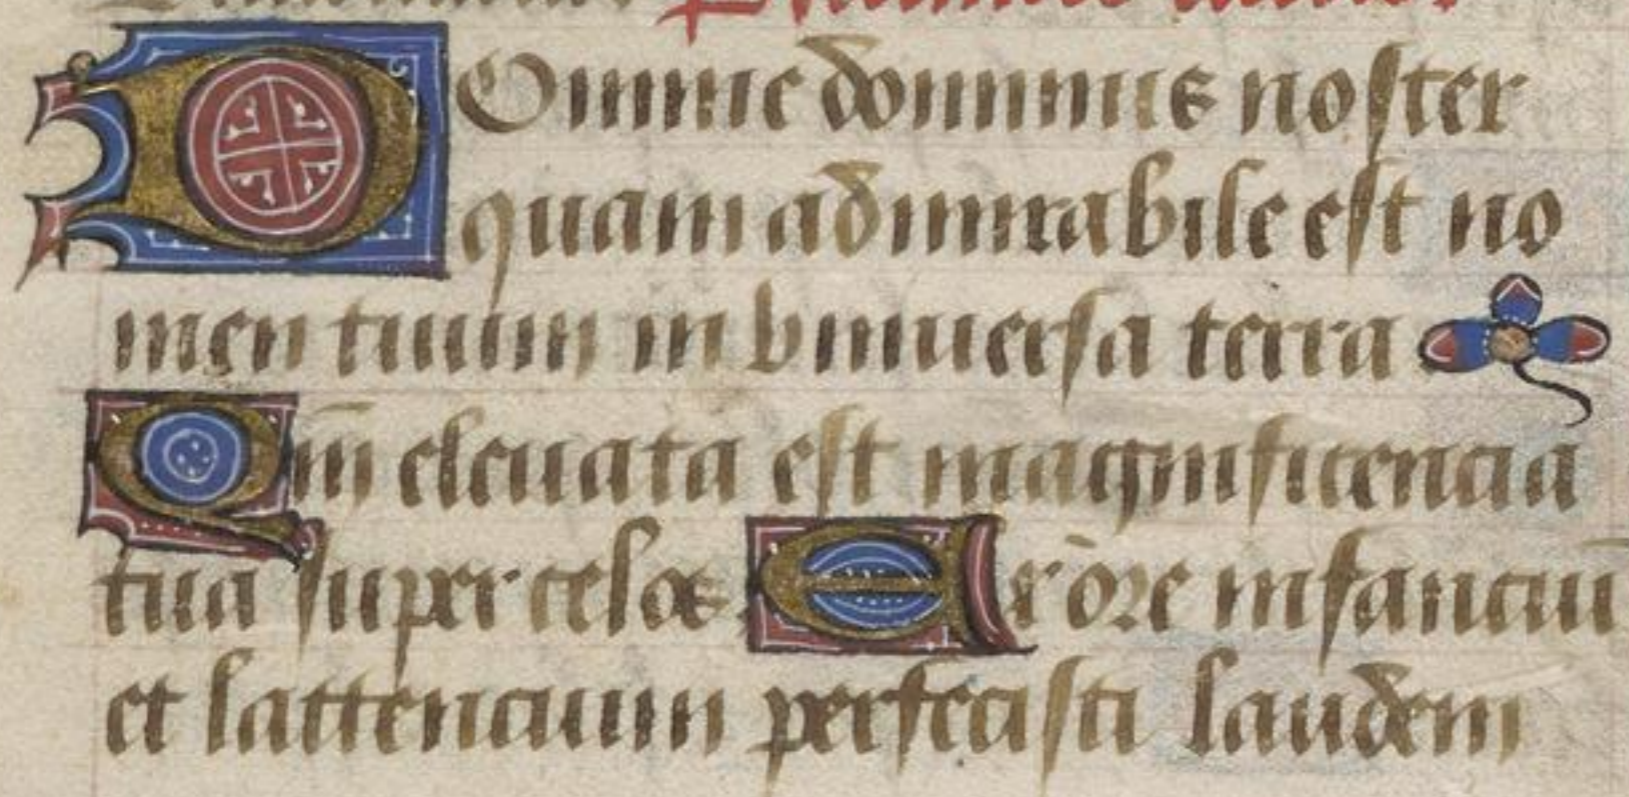 Domine dominus noster
quam admirabile est no
men tuum in vniuersa terra
Qm̄ eleuata est magnificencia
tua super celos Ex ore infanciū
et lattencium perfecisti laudem